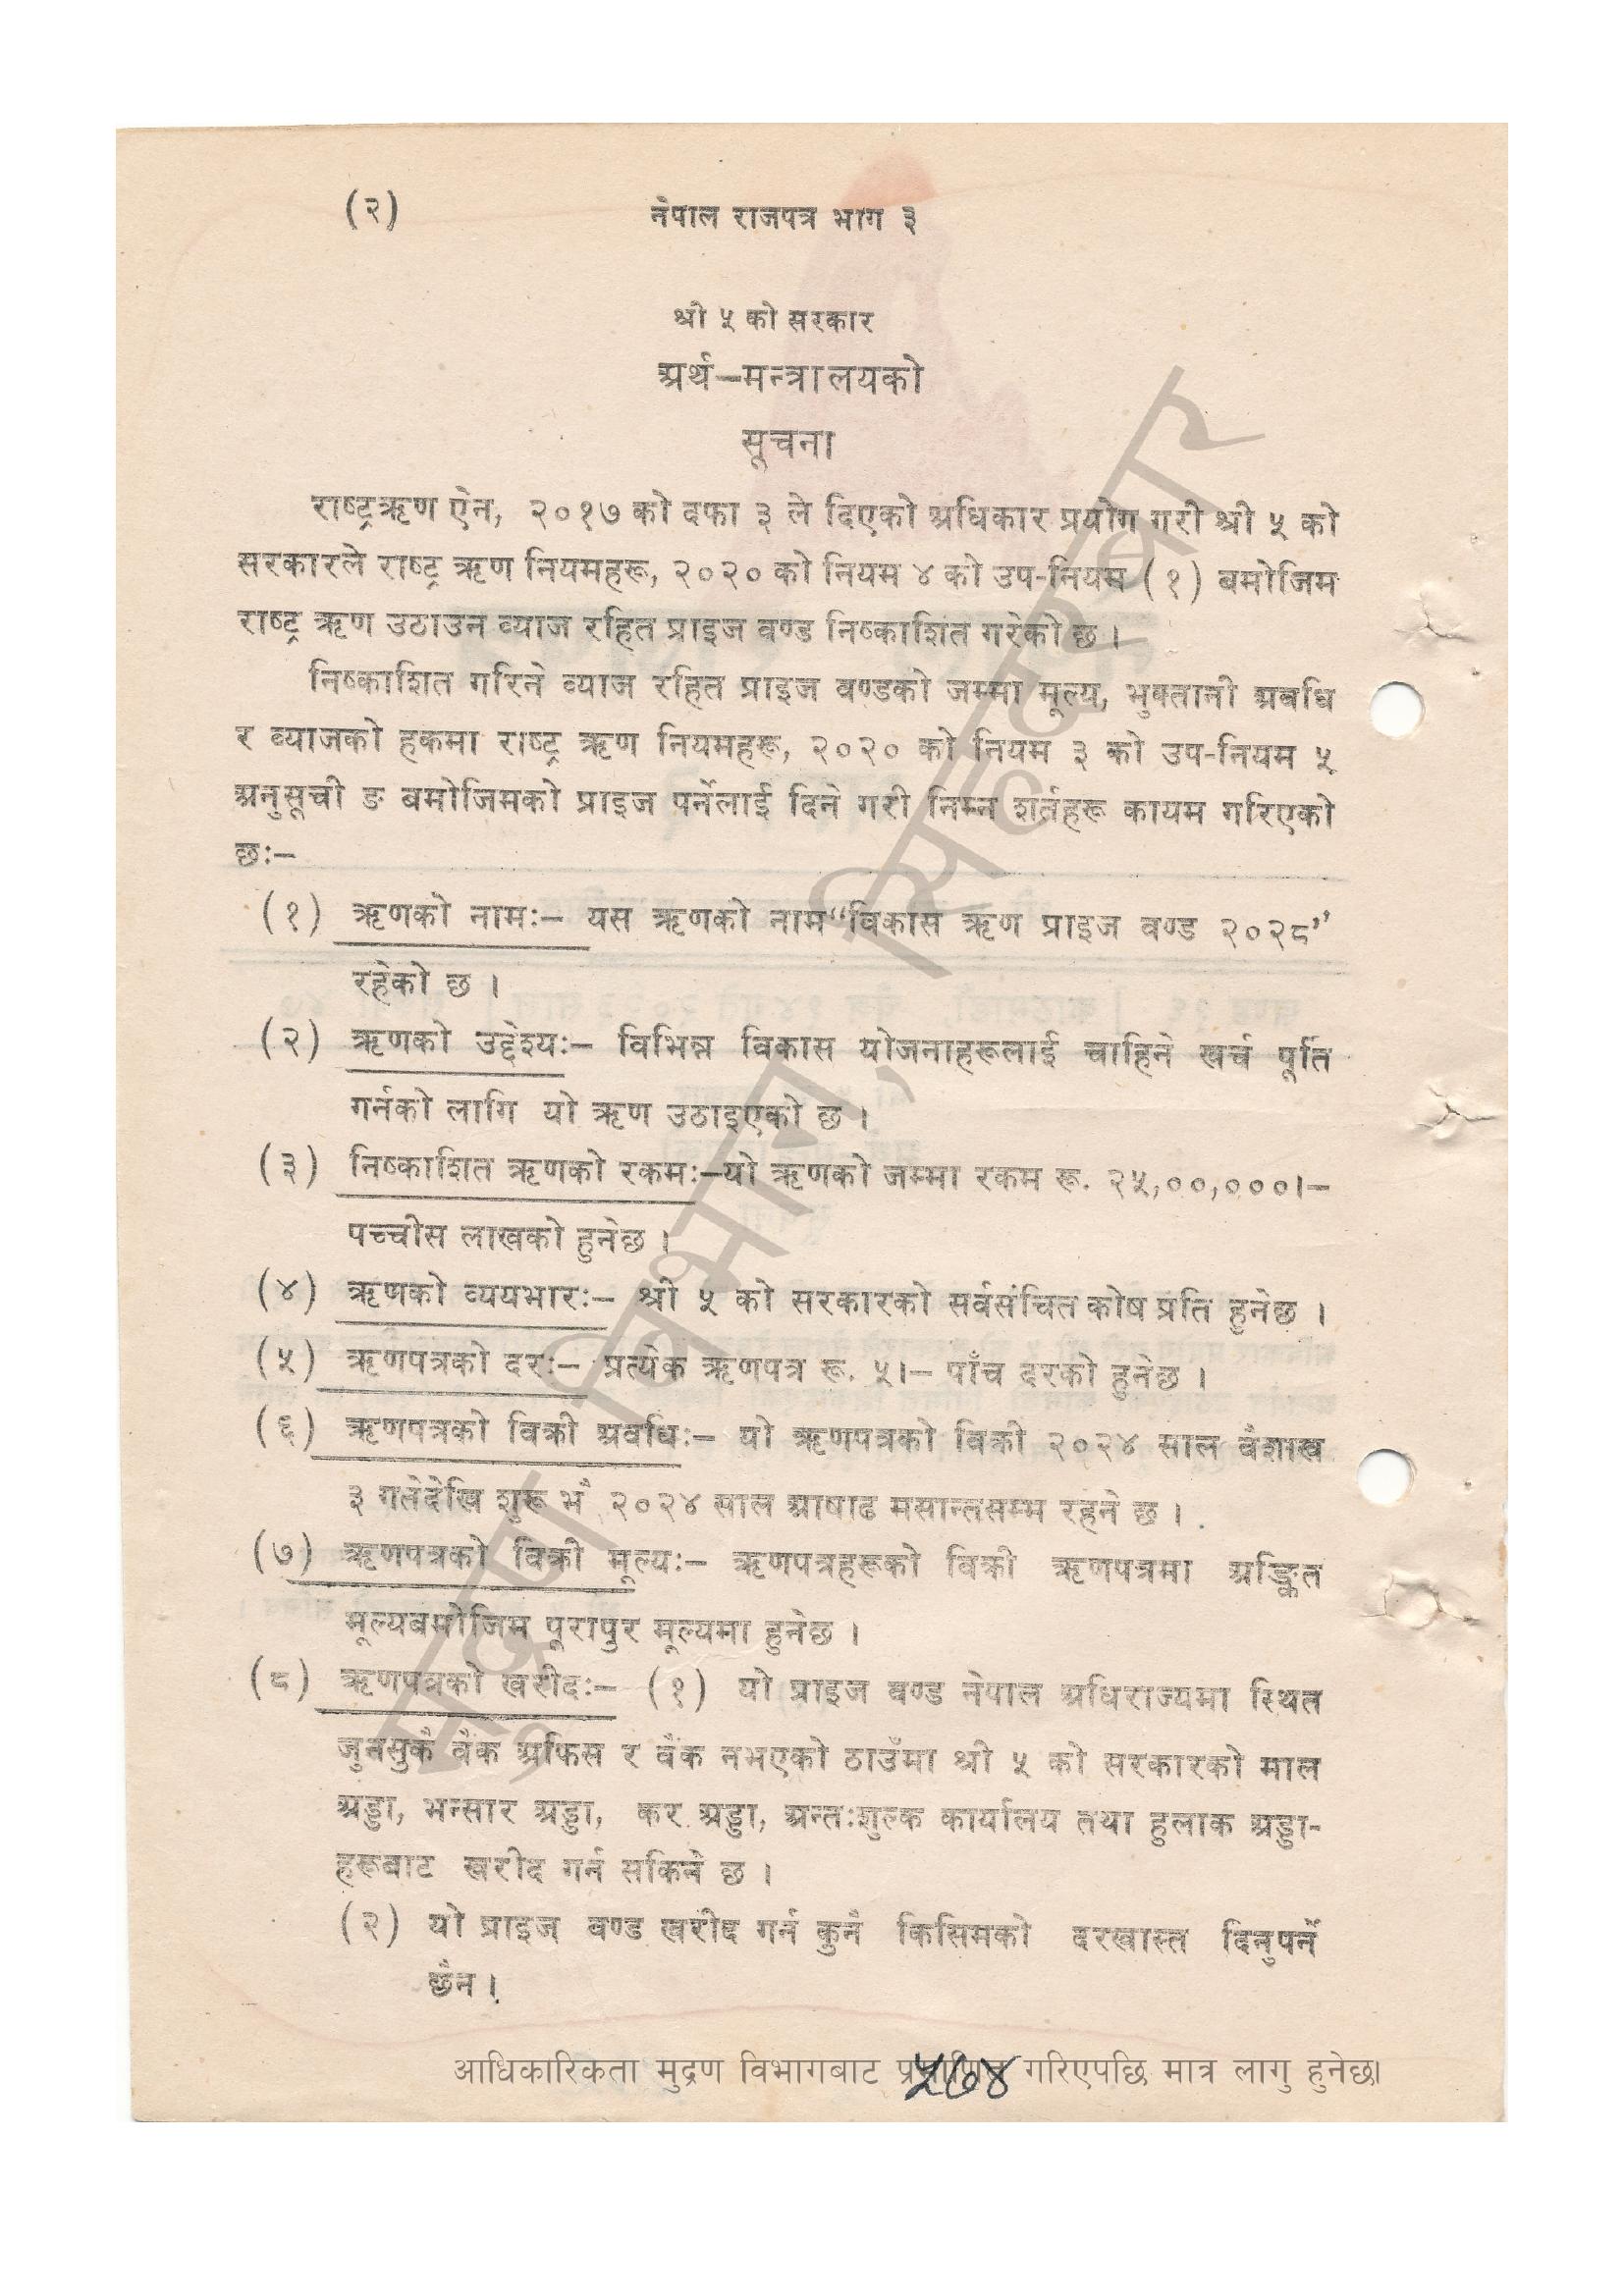 (२)
नेपाल राजपत्र भाग ३
श्री ५ को सरकार
अर्थ–मन्त्रालयको
सूचना
राष्ट्रऋण ऐन, २०१७ को दफा ३ ले दिएको अधिकार प्रयोग गरी श्री ५ को
सरकारले राष्ट्र ऋण नियमहरू, २०२० को नियम ४ को उप-नियम (१) बमोजिम
राष्ट्र ऋण उठाउन व्याज रहित प्राइज वण्ड निष्काशित गरेको छ ।
निष्काशित गरिने व्याज रहित प्राइज वण्डको जम्मा मूल्य, भुक्तानी अवधि
र व्याजको हकमा राष्ट्र ऋण नियमहरू, २०२० को नियम ३ को उप-नियम ५
अनुसूची ङ बमोजिमको प्राइज पर्नेलाई दिने गरी निम्न शर्तहरू कायम गरिएको
छः–
(१) ऋणको नामः– यस ऋणको नाम“विकास ऋण प्राइज वण्ड २०२८”
रहेको छ ।
(२) ऋणको उद्देश्यः– विभिन्न विकास योजनाहरूलाई चाहिने खर्च पूर्ति
गर्नको लागि यो ऋण उठाइएको छ ।
(३) निष्काशित ऋणको रकमः–यो ऋणको जम्मा रकम रू. २५,००,०००।–
पच्चीस लाखको हुनेछ ।
(४) ऋणको व्ययभारः– श्री ५ को सरकारको सर्वसंचित कोष प्रति हुनेछ ।
(५) ऋणपत्रको दरः– प्रत्येक ऋणपत्र रू. ५।– पाँच दरको हुनेछ ।
(६) ऋणपत्रको विक्री अवधिः– यो ऋणपत्रको विक्री २०२४ साल वैशाख
३ गतेदेखि शुरू भै २०२४ साल आषाढ मसान्तसम्म रहने छ ।
(७) ऋणपत्रको विक्री मूल्यः– ऋणपत्रहरूको विक्री ऋणपत्रमा अङ्कित
मूल्यबमोजिम पूरापुर मूल्यमा हुनेछ ।
(८) ऋणपत्रको खरीदः– (१) यो प्राइज वण्ड नेपाल अधिराज्यमा स्थित
जुनसुकै वैंक अफिस र वैंक नभएको ठाउँमा श्री ५ को सरकारको माल
अड्डा, भन्सार अड्डा, कर अड्डा, अन्तःशुल्क कार्यालय तथा हुलाक अड्डा-
हरूबाट खरीद गर्न सकिने छ ।
(२) यो प्राइज वण्ड खरीद गर्न कुनै किसिमको दरखास्त दिनुपर्ने
छैन ।
मुद्रण विभाग, सिंहदरबार
आधिकारिकता मुद्रण विभागबाट प्रमाणित गरिएपछि मात्र लागु हुनेछ।
५७४